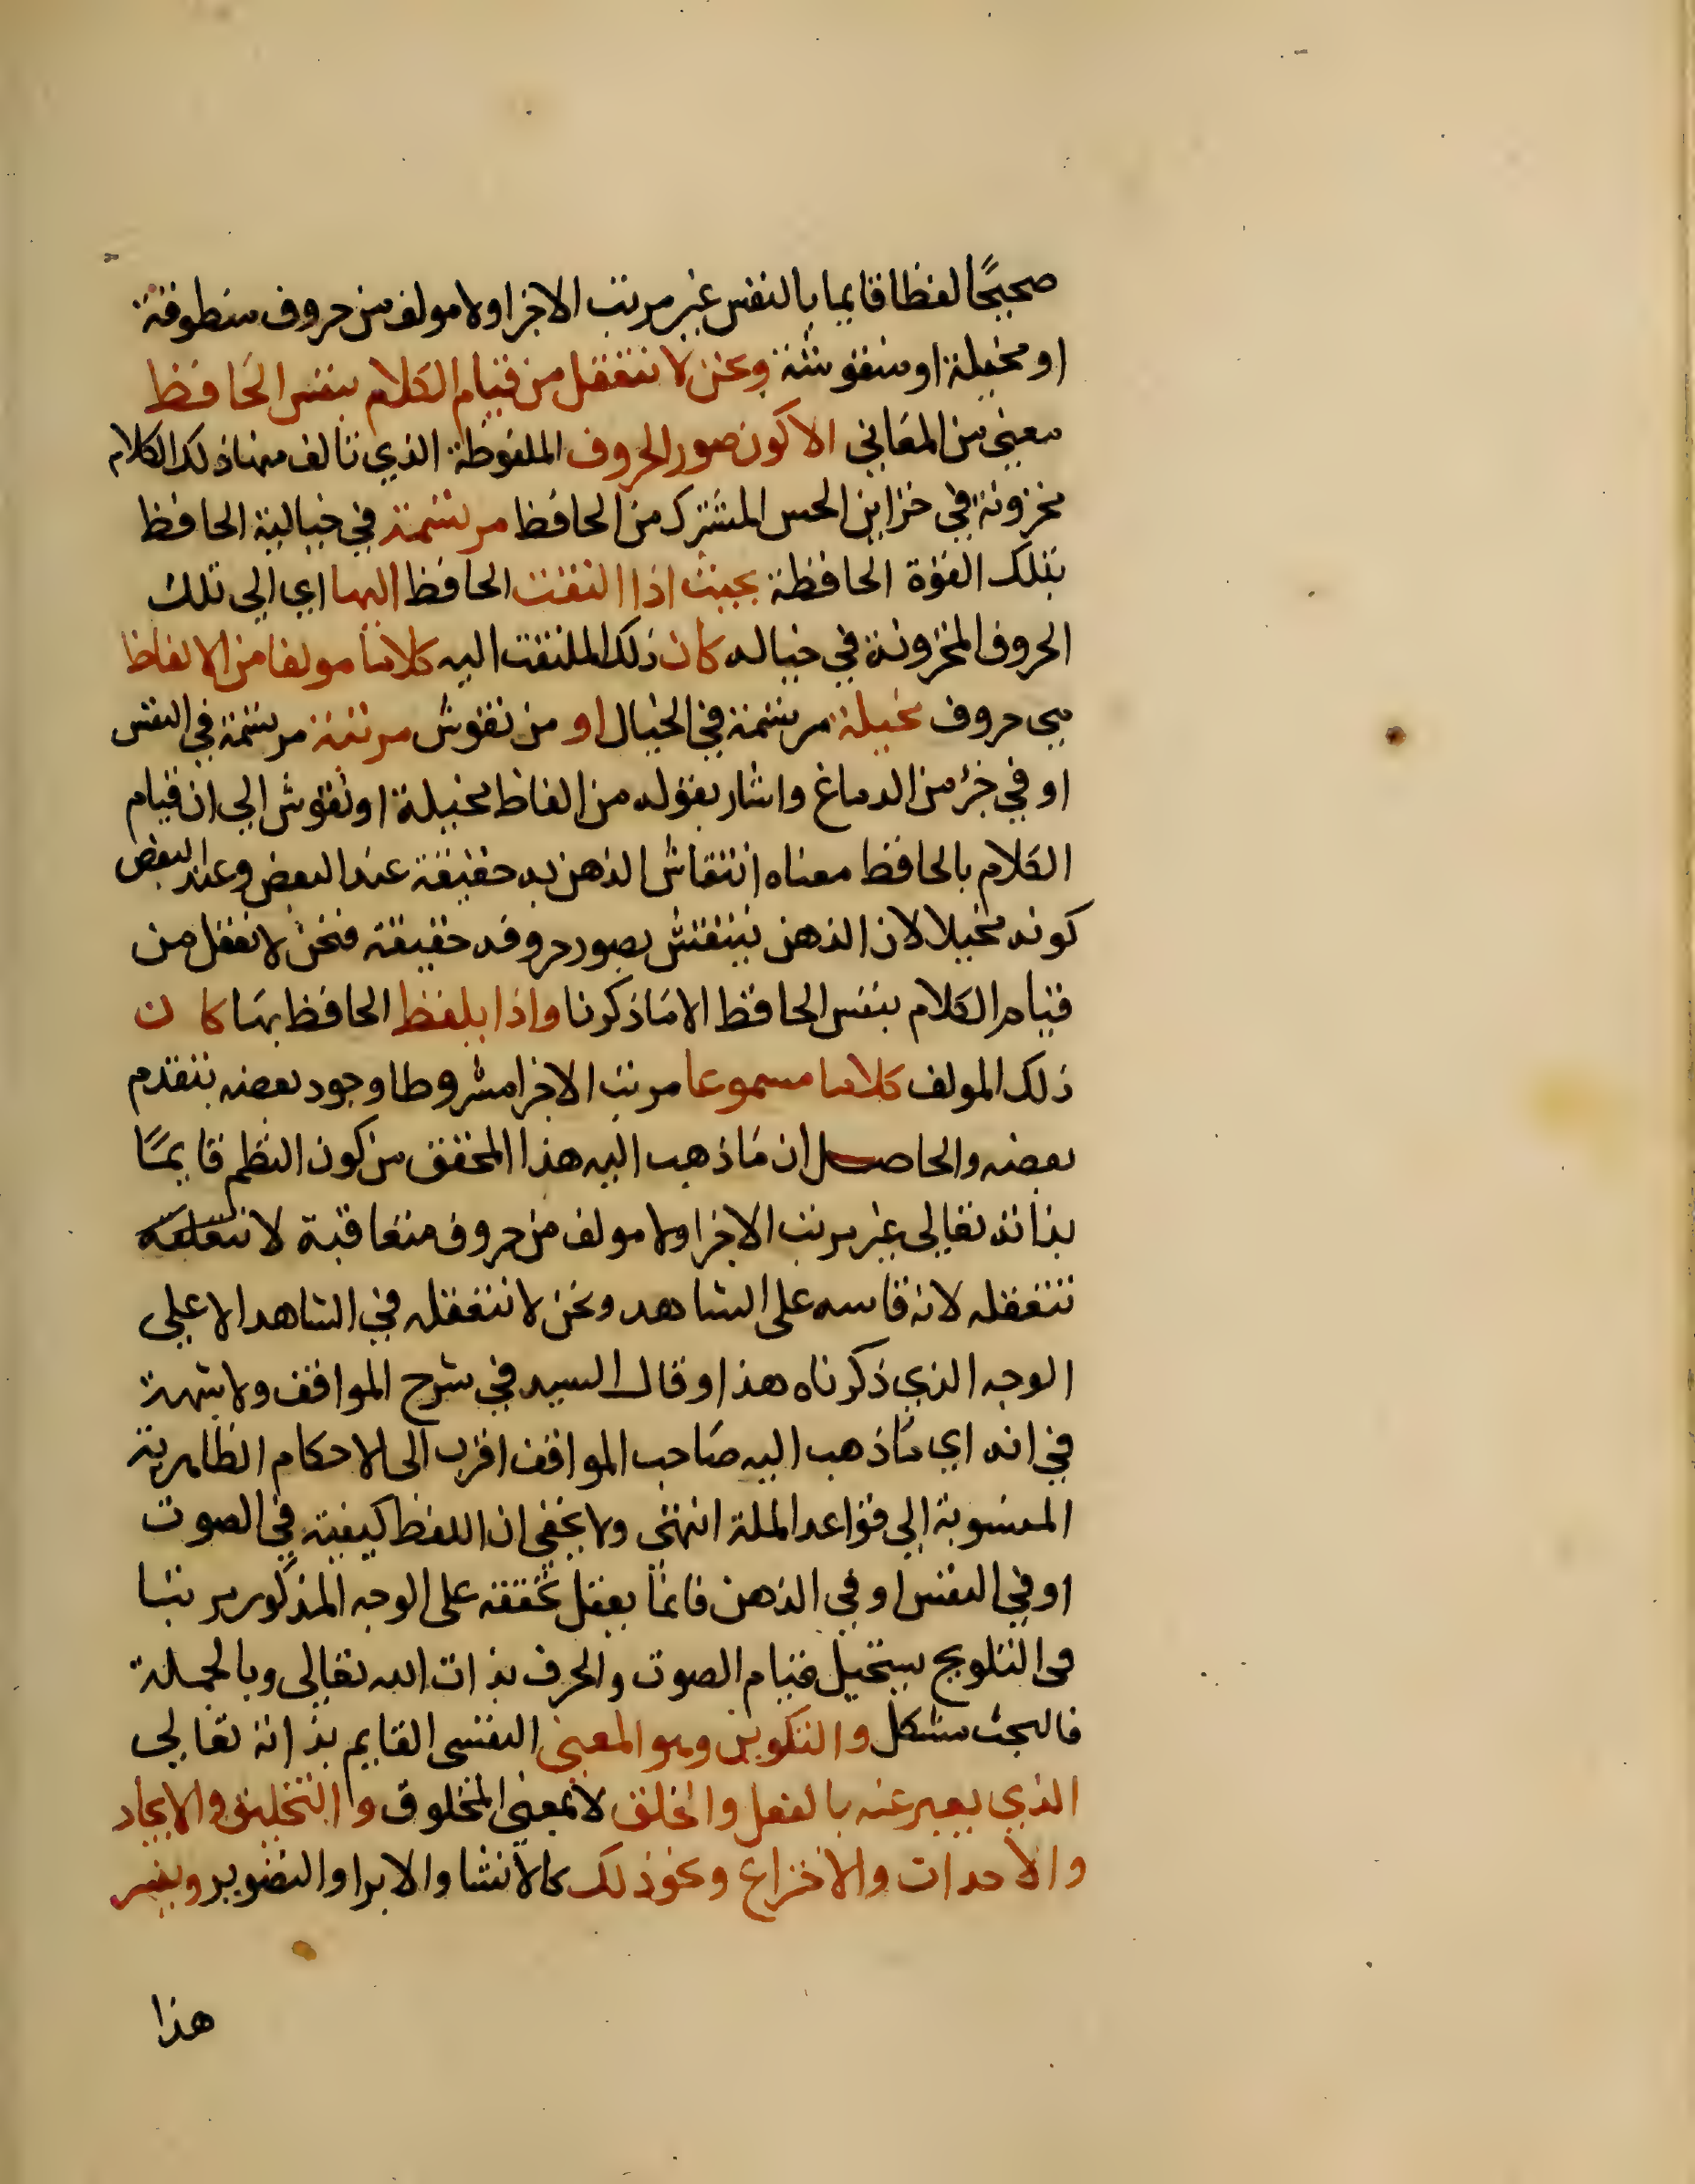 صحيحًا لفظا قايما بالنفس غير مرتب الاجزا ولا مولف من حروف منطوقة
او مخيلة او منقوشة ونحن لا نتعقل من قيام الكلام بنفس الحَافظ
معنى من المعَاني الا كون صور الحروف الملفوظة الذي تالف منها ذلك الكلام
مخزونة في خزاين الحس المشترك من الحافظ مرتسمة في خيالية الحافظ
بتلك القوة الحافظة بحيث اذا التفت الحافظ اليها اي الى تلك
الحروف المخزونة في خياله كان ذلك الملتفت اليه كلاما مولفا من الالفاظ
هى حروف مخيلة مرتسمة في الخيال او من نقوش مرتبة مرتسمة في النفس
او في جزء من الدماغ واشار بقوله من الفاظ مخيلة او نقوش الى ان قيام
الكلام بالحافظ معناه انتقاش الذهن به حقيقة عند البعض وعند البعض
كونه مخيلا لان الذهن ينتقش بصور حروفه حقيقة فنحن لا نعقل من
قيام الكلام بنفس الحافظ الا مَا ذكرنا واذا تلفظ الحافظ بهَا كان
ذلك المولف كلاما مسموعا مرتب الاجزا مشروطا وجود بعضه بتقدم
بعضه والحاصل ان مَا ذهب اليه هذا المحقق من كون النظم قايمًا
بذاته تعالى غير مرتب الاجزا ولا مولف من حروف متعاقبة لا
نتعقله لانه قاسه على الشاهد ونحن لا نتعقله في الشاهد الا على
الوجه الذي ذكرناه هذا وقال السيد في شرح المواقف ولا شبهة
في انه اي مَا ذهب اليه صَاحب المواقف اقرب الى الاحكام الظاهرية
المنسوبة الى قواعد الملة انتهى ولا يخفى ان اللفظ كيفية في الصوت
او في النفس او في الذهن فانما يعقل تحققه على الوجه المذكور مرتبا
فى التلويح يستحيل قيام الصوت والحرف بذات الله تعالى وبالجملة
فالبحث مشكل والتكوين وهو المعنى النفسى القايم بذاته تعالى
الذي يعبر عنه بالفعل والخلق لا بمعنى المخلوق والتخليق والايجاد
والاحداث والاختراع ونحو ذلك كالانشا والابرا والتصوير ويفسر
هذا